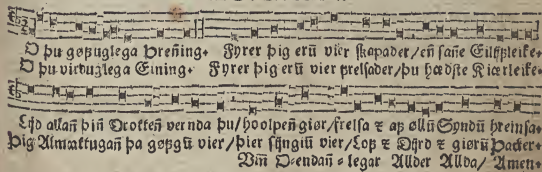 O þu gøfuglega Þreñing. Fyrer þig erū vier skapader/en sañe Eilifleike.
O þu virduglega Eining. Fyrer þig erū vier frelsader/þu hædste Kiærleike.
Lijd allañ þiñ Drotteñ vernda þu/hoolpeñ giør/frelsa ⁊ af øllū Syndū hreinsa.
Þig Almættugañ þa gøfgū vier/þier syngiū vier/Lof ⁊ Dijrd ⁊ giørū Þacker.
Vm Oendañ-legar Allder Allda/ Amen.